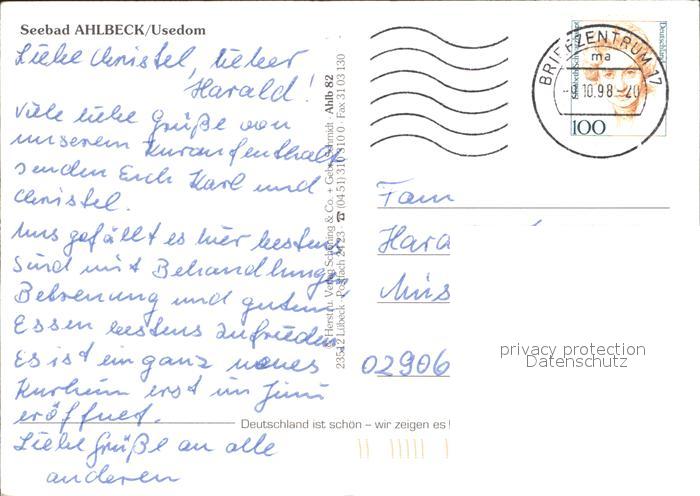 Seebad AHLBECK/Usedom
Liebe Christel, lieber
Harald!
Viele liebe Grüße von
unserem Kuraufenthalt
senden Euch Karl und
Christel.
Uns gefällt es hier bestens
sind mit Behandlungen
Betreuung und gutem
Essen bestens zufrieden
Es ist ein ganz neues
Kurheim erst im Juni
eröffnet.
Liebe Grüße an alle
anderen
© Herst. u. Verlag Schöning & Co. + Gebr. Schmidt · Ahlb 82
23512 Lübeck · Postfach 24 23 · ☎ (04 51) 310 310 0 · Fax 31 03 130
Deutschland ist schön – wir zeigen es!
BRIEFZENTRUM 17
ma
10.98-20
Deutschland
100
Fam
Hara
02906
privacy protection
Datenschutz